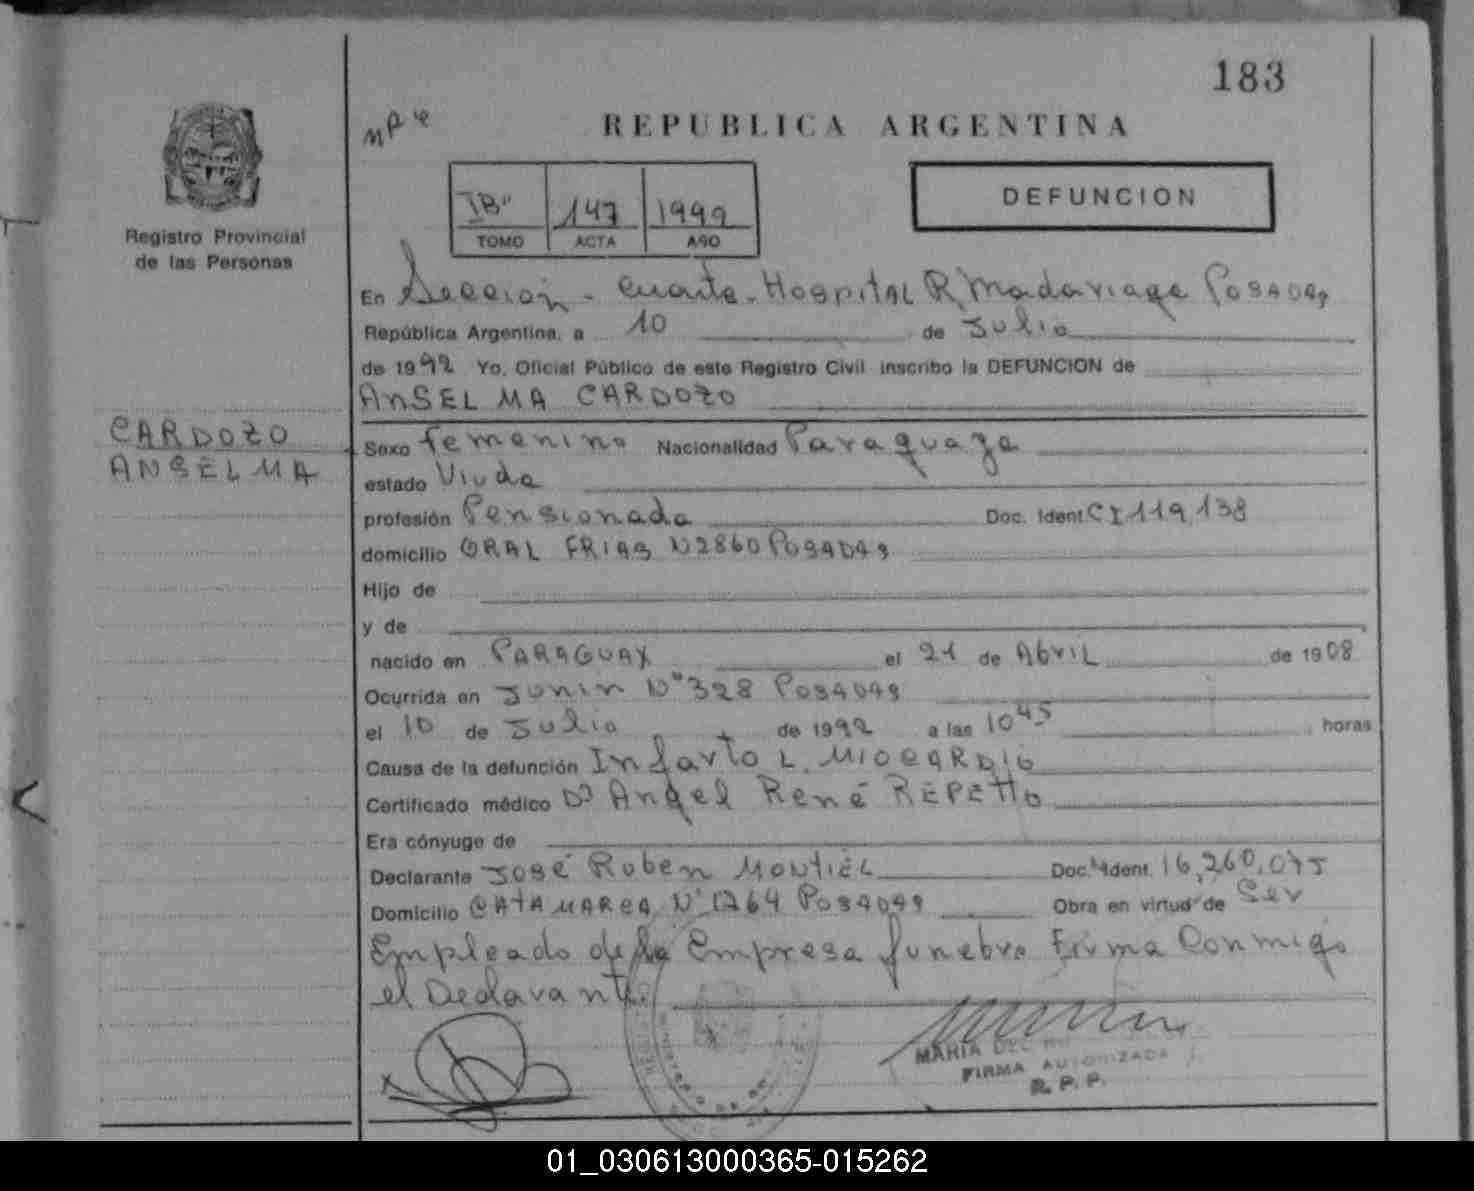 183
REPUBLICA ARGENTINA
DEFUNCION
147 1992
TOMO ACTA AÑO
Registro Provincial
de las Personas
En Sección - Cuarta - Hospital R, Madariaga Posadas
República Argentina, a 10 de Julio
de 1992 Yo, Oficial Público de este Registro Civil inscribo la DEFUNCION de
ANSELMA CARDOZO
CARDOZO
ANSELMA
Sexo femenino Nacionalidad Paraguaya
estado Viuda
profesión Pensionada Doc. Ident. CI 119,138
domicilio GRAL FRIAS Nº 2860 POSADAS
Hijo de
y de
nacido en PARAGUAY el 21 de Abril de 1908
Ocurrida en Junin Nº 328 Posadas
el 10 de Julio de 1992 a las 10 45 horas
Causa de la defunción Infarto MIOCARDIO
Certificado médico Dr Angel René REPETTO
Era cónyuge de
Declarante José Ruben Montiel Doc. Ident. 16,260,075
Domicilio CATAMARCA Nº 1764 Posadas Obra en virtud de Ser
Empleado de la Empresa funebre Firma Conmigo
el Declarante.
MARIA DEL
FIRMA AUTORIZADA
R. P. P.
01_030613000365-015262